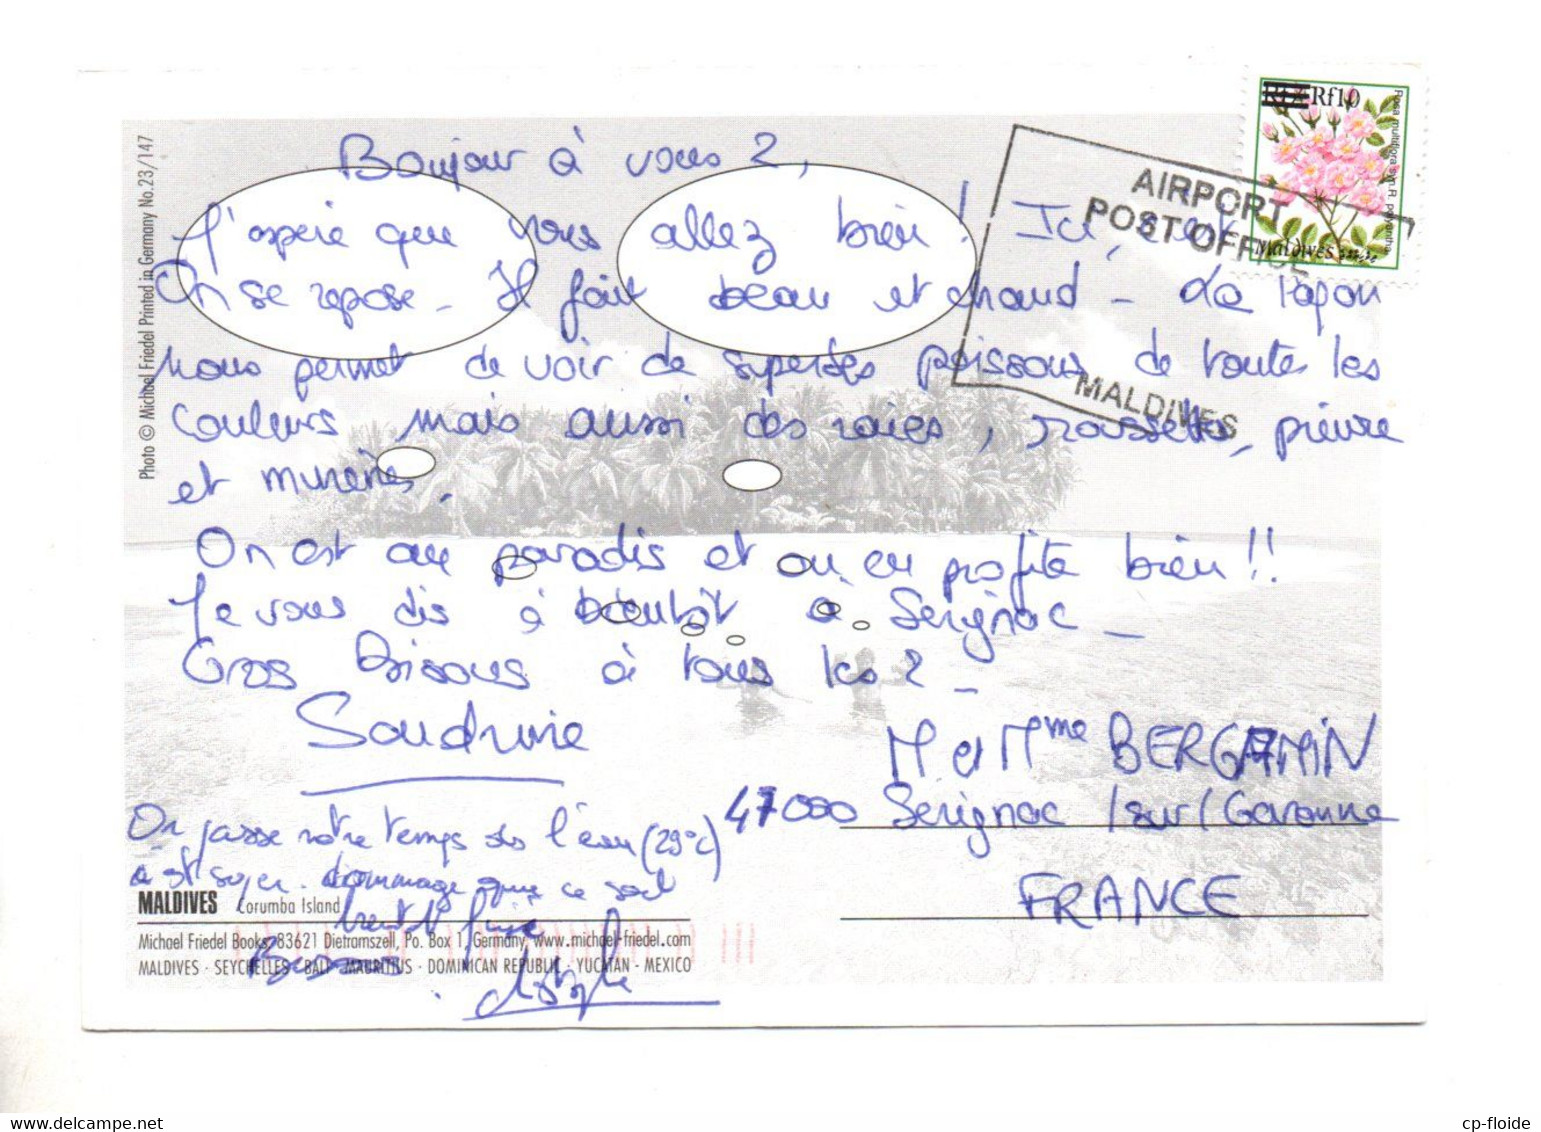 Bonjour à vous 2,
J'espère que vous allez bien ! Ici,
On se repose - Il fait beau et chaud - Le lagon
nous permet de voir de superbes poissons de toutes les
couleurs mais aussi des raies, roussettes, pieuvre
et murènes.
On est au paradis et on en profite bien !!
Je vous dis à bientôt à Serignac -
Gros Bisous à tous les 2 -
Sandrine
On passe notre temps ds l'eau (29°c)
c'est super. dommage que ce soit
Bisous
M et Mme BERGAMIN
47000 Serignac /sur/ Garonne
FRANCE
Rf10
Rosa multiflora syn. R. polyantha
Maldives
AIRPORT
POST OFFICE
MALDIVES
Photo © Michael Friedel Printed in Germany No.23/147
MALDIVES Corumba Island
Michael Friedel Books, 83621 Dietramszell, Po. Box 1, Germany, www.michael-friedel.com
MALDIVES · SEYCHELLES · BALI · MAURITIUS · DOMINICAN REPUBLIC · YUCATAN - MEXICO
cp-floide